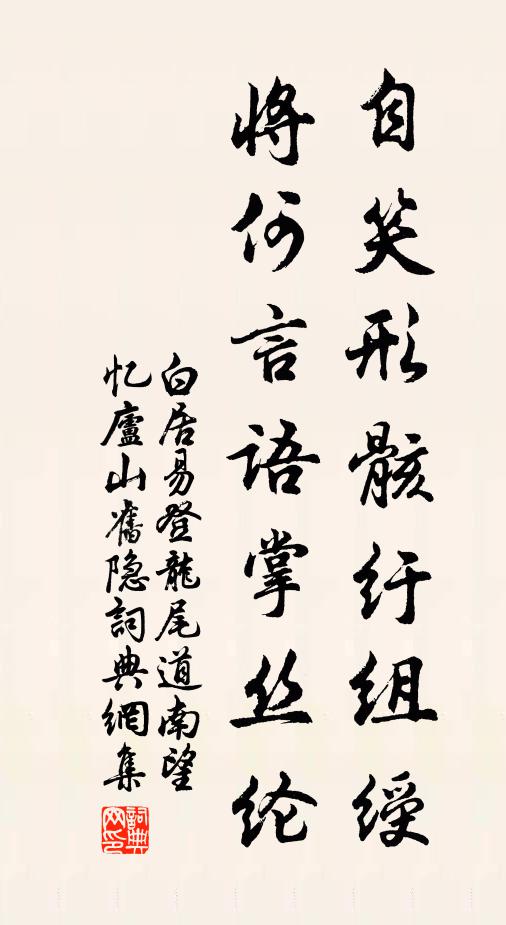 自笑形骸纡组绶
将何言语掌丝纶
白居易登龍尾道南望
忆廬山舊隐詞典網集
詞典
网印